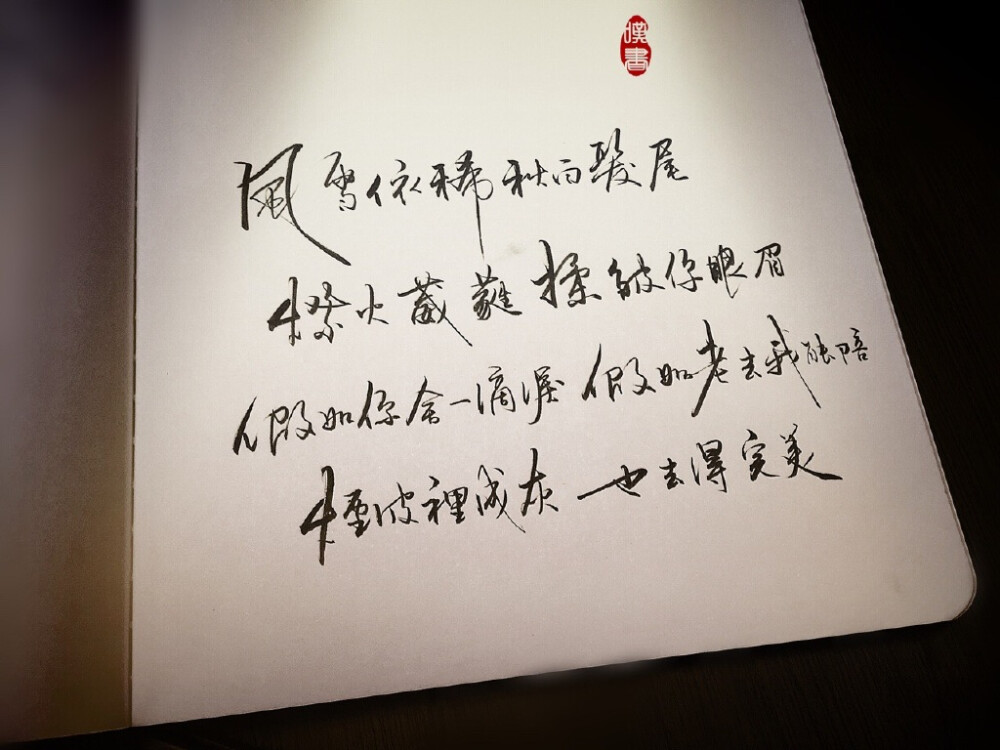 嘆書
風雪依稀秋白髮尾
燈火葳蕤揉皺你眼眉
假如你舍一滴淚 假如老去我能陪
煙波裡成灰 也去得完美